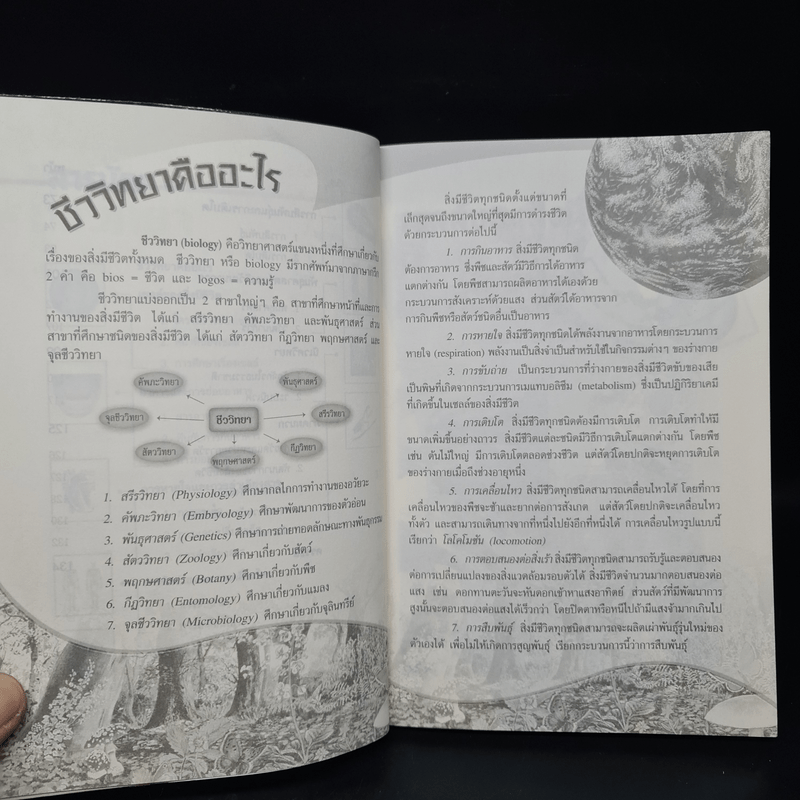 ชีววิทยาคืออะไร
ชีววิทยา (biology) คือวิทยาศาสตร์แขนงหนึ่งที่ศึกษาเกี่ยวกับ
เรื่องของสิ่งมีชีวิตทั้งหมด ชีววิทยา หรือ biology มีรากศัพท์มาจากภาษากรีก
2 คำ คือ bios = ชีวิต และ logos = ความรู้
ชีววิทยาแบ่งออกเป็น 2 สาขาใหญ่ๆ คือ สาขาที่ศึกษาหน้าที่และการ
ทำงานของสิ่งมีชีวิต ได้แก่ สรีรวิทยา คัพภะวิทยา และพันธุศาสตร์ ส่วน
สาขาที่ศึกษาชนิดของสิ่งมีชีวิต ได้แก่ สัตววิทยา กีฏวิทยา พฤกษศาสตร์ และ
จุลชีววิทยา
คัพภะวิทยา
พันธุศาสตร์
จุลชีววิทยา
ชีววิทยา
สรีรวิทยา
สัตววิทยา
พฤกษศาสตร์
กีฏวิทยา
1. สรีรวิทยา (Physiology) ศึกษากลไกการทำงานของอวัยวะ
2. คัพภะวิทยา (Embryology) ศึกษาพัฒนาการของตัวอ่อน
3. พันธุศาสตร์ (Genetics) ศึกษาการถ่ายทอดลักษณะทางพันธุกรรม
4. สัตววิทยา (Zoology) ศึกษาเกี่ยวกับสัตว์
5. พฤกษศาสตร์ (Botany) ศึกษาเกี่ยวกับพืช
6. กีฏวิทยา (Entomology) ศึกษาเกี่ยวกับแมลง
7. จุลชีววิทยา (Microbiology) ศึกษาเกี่ยวกับจุลินทรีย์
สิ่งมีชีวิตทุกชนิดตั้งแต่ขนาดที่
เล็กสุดจนถึงขนาดใหญ่ที่สุดมีการดำรงชีวิต
ด้วยกระบวนการต่อไปนี้
1. การกินอาหาร สิ่งมีชีวิตทุกชนิด
ต้องการอาหาร ซึ่งพืชและสัตว์มีวิธีการได้อาหาร
แตกต่างกัน โดยพืชสามารถผลิตอาหารได้เองด้วย
กระบวนการสังเคราะห์ด้วยแสง ส่วนสัตว์ได้อาหารจาก
การกินพืชหรือสัตว์ชนิดอื่นเป็นอาหาร
2. การหายใจ สิ่งมีชีวิตทุกชนิดได้พลังงานจากอาหารโดยกระบวนการ
หายใจ (respiration) พลังงานเป็นสิ่งจำเป็นสำหรับใช้ในกิจกรรมต่างๆ ของร่างกาย
3. การขับถ่าย เป็นกระบวนการที่ร่างกายของสิ่งมีชีวิตขับของเสีย
เป็นพิษที่เกิดจากกระบวนการเมแทบอลิซึม (metabolism) ซึ่งเป็นปฏิกิริยาเคมี
ที่เกิดขึ้นในเซลล์ของสิ่งมีชีวิต
4. การเติบโต สิ่งมีชีวิตทุกชนิดต้องมีการเติบโต การเติบโตทำให้มี
ขนาดเพิ่มขึ้นอย่างถาวร สิ่งมีชีวิตแต่ละชนิดมีวิธีการเติบโตแตกต่างกัน โดยพืช
เช่น ต้นไม้ใหญ่ มีการเติบโตตลอดช่วงชีวิต แต่สัตว์โดยปกติจะหยุดการเติบโต
ของร่างกายเมื่อถึงช่วงอายุหนึ่ง
5. การเคลื่อนไหว สิ่งมีชีวิตทุกชนิดสามารถเคลื่อนไหวได้ โดยที่การ
เคลื่อนไหวของพืชจะช้าและยากต่อการสังเกต แต่สัตว์โดยปกติจะเคลื่อนไหว
ทั้งตัว และสามารถเดินทางจากที่หนึ่งไปยังอีกที่หนึ่งได้ การเคลื่อนไหวรูปแบบนี้
เรียกว่า โลโคโมชัน (locomotion)
6. การตอบสนองต่อสิ่งเร้า สิ่งมีชีวิตทุกชนิดสามารถรับรู้และตอบสนอง
ต่อการเปลี่ยนแปลงของสิ่งแวดล้อมรอบตัวได้ สิ่งมีชีวิตจำนวนมากตอบสนองต่อ
แสง เช่น ดอกทานตะวันจะหันดอกเข้าหาแสงอาทิตย์ ส่วนสัตว์ที่มีพัฒนาการ
สูงนั้นจะตอบสนองต่อแสงได้เร็วกว่า โดยปิดตาหรือหนีไปถ้ามีแสงจ้ามากเกินไป
7. การสืบพันธุ์ สิ่งมีชีวิตทุกชนิดสามารถจะผลิตเผ่าพันธุ์รุ่นใหม่ของ
ตัวเองได้ เพื่อไม่ให้เกิดการสูญพันธุ์ เรียกกระบวนการนี้ว่าการสืบพันธุ์